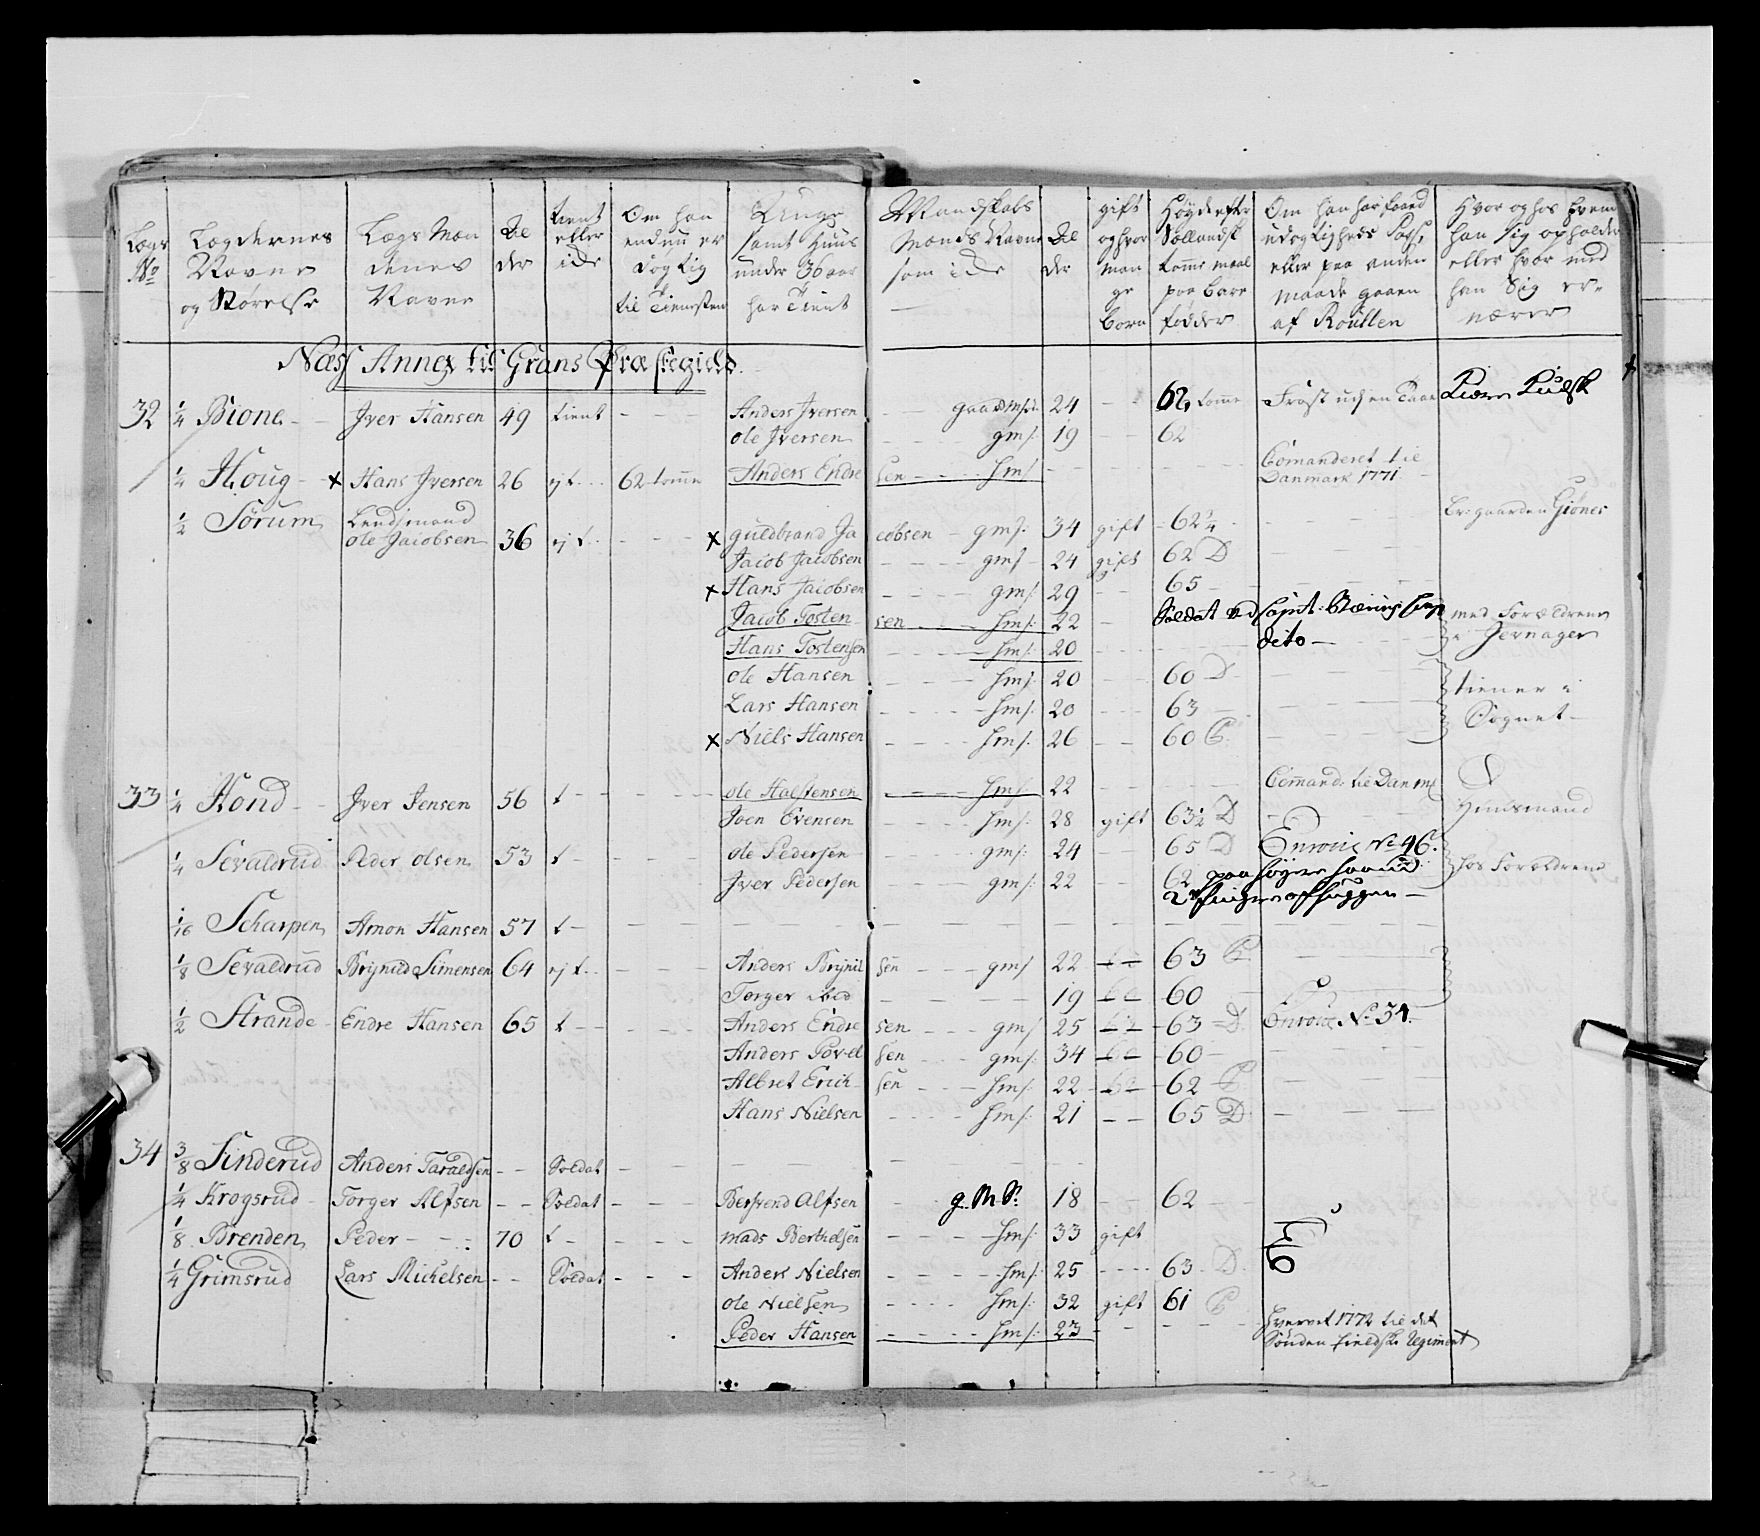 Legs No | Legdernes Navne og Størelse | Legs Mændenes Navne | Alder | tient eller ide | Om han endnu er dogtig til Tienesten | Unge samt huus under 36 aar har Tient | Mandskabs Mænds Navne som ide | Alder | gift oghvor mange Børn | Høyde efter Sællandsk tomme maal paa bare fødder | Om han har faaed udogtigheds Pass, eller paa anden maade gaaen af Roullen | Hvor og hos hvem han sig opholder eller hvor med han Sig ernærer
Næss Annex til Grans Præstegield
32 1/4 Bione Jver Hansen 49 tient Anders Jversen gaardms: 24 62 tomme
ole Jversen gms: 19 62
1/4 Houg x Hans Jversen 26 ej t. 62 tomme Anders Endresen hms Comanderet til Danmark 1771.
1/2 Sørum Lendsmand ole Jacobsen 36 ej t. x guldbrand Jacobsen gms: 34 gift 62 1/4 gaarden Giønes
Jacob Jacobsen gms 24 gift 62 D
x Hans Jacobsen gms: 29 65
Jacob Tostensen hms: 22 Soldat ved med Forældrene
Hans Tostensen hms: 20 dito i Jernager
ole Hansen hms: 20 60 D tiener i
Lars Hansen hms: 20 63 Sognet
x Niels Hansen hms: 26 60
33 1/4 Hond Jver Jensen 56 t ole Halstensen hms 22 Comand: til Danm
Joen Evensen hms: 28 gift 63 1/2 D Huusmand
1/4 Sevaldrud Peder olsen 53 t ole Pedersen gms: 24 65 D Enroul No 46. hos Forældrene
Jver Pedersen gms: 22 62 paa høyre haand
2 finger afhuggen
1/16 Scharpen Amon Hansen 57 t
1/8 Sevaldrud Brynild Simensen 64 ej t. Anders Brynilsen gms 22 63
Torger ibid 19 60
1/2 Strande Endre Hansen 65 t Anders Endresen gms 25 63 D Enroul No 34.
Anders Povelsen gms: 34 60
Albret Erichsen hms: 22 62
Hans Nielsen hms: 21 65 D
34 3/8 Sinderud Anders Taraldsen Soldat
1/4 Krogsrud Torger Alfsen Soldat Berfvend Alfsen g.M.S. 18 62
1/8 Brenden Peder 70 t mads Berthelsen hms: 33 gift
1/4 Grimsrud Lars Michelsen Soldat Anders Nielsen hms: 25 63 D
ole Nielsen hms: 32 gift 61
Peder Hansen hms: 23 hvervet 1772 til det Sønden fieldske Regiment